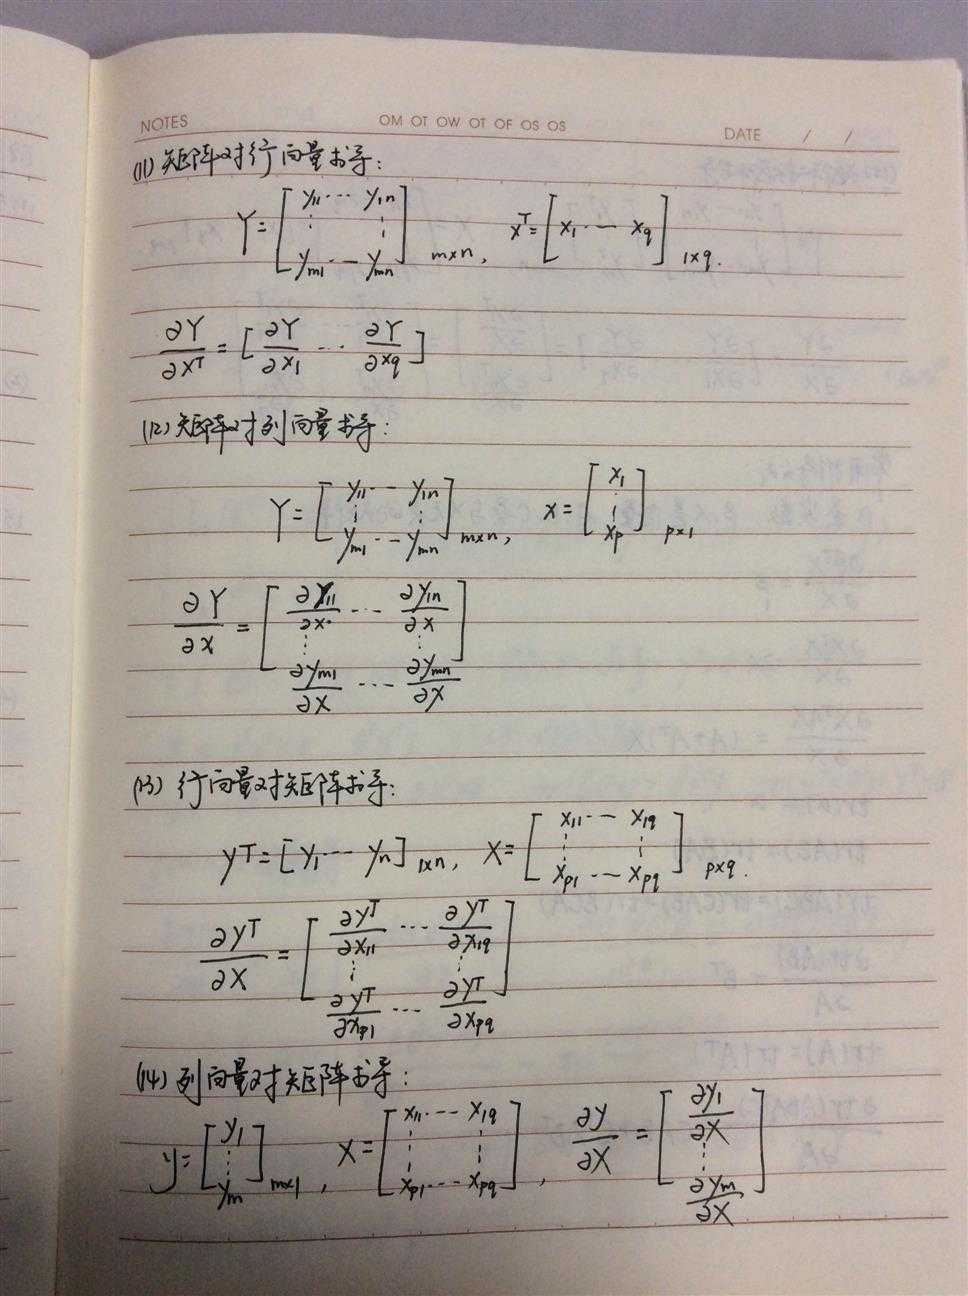 NOTES OM OT OW OT OF OS OS DATE / /
(11) 矩阵对行向量求导:
Y = [y₁₁ ··· y₁ₙ ⋮ ⋮ yₘ₁ ··· yₘₙ]ₘ×ₙ, xᵀ = [x₁ ··· x_q]₁×q.
∂Y/∂xᵀ = [∂Y/∂x₁ ··· ∂Y/∂x_q]
(12) 矩阵对列向量求导:
Y = [y₁₁ ··· y₁ₙ ⋮ ⋮ yₘ₁ ··· yₘₙ]ₘ×ₙ, x = [x₁ ⋮ xₚ]ₚ×₁
∂Y/∂x = [∂y₁₁/∂x ··· ∂y₁ₙ/∂x ⋮ ⋮ ∂yₘ₁/∂x ··· ∂yₘₙ/∂x]
(13) 行向量对矩阵求导:
yᵀ = [y₁ ··· yₙ]₁×ₙ, X = [x₁₁ ··· x₁q ⋮ ⋮ xₚ₁ ··· xₚq]ₚ×q.
∂yᵀ/∂X = [∂yᵀ/∂x₁₁ ··· ∂yᵀ/∂x₁q ⋮ ⋮ ∂yᵀ/∂xₚ₁ ··· ∂yᵀ/∂xₚq]
(14) 列向量对矩阵求导:
y = [y₁ ⋮ yₘ]ₘ×₁, X = [x₁₁ ··· x₁q ⋮ ⋮ xₚ₁ ··· xₚq], ∂y/∂X = [∂y₁/∂X ⋮ ∂yₘ/∂X]